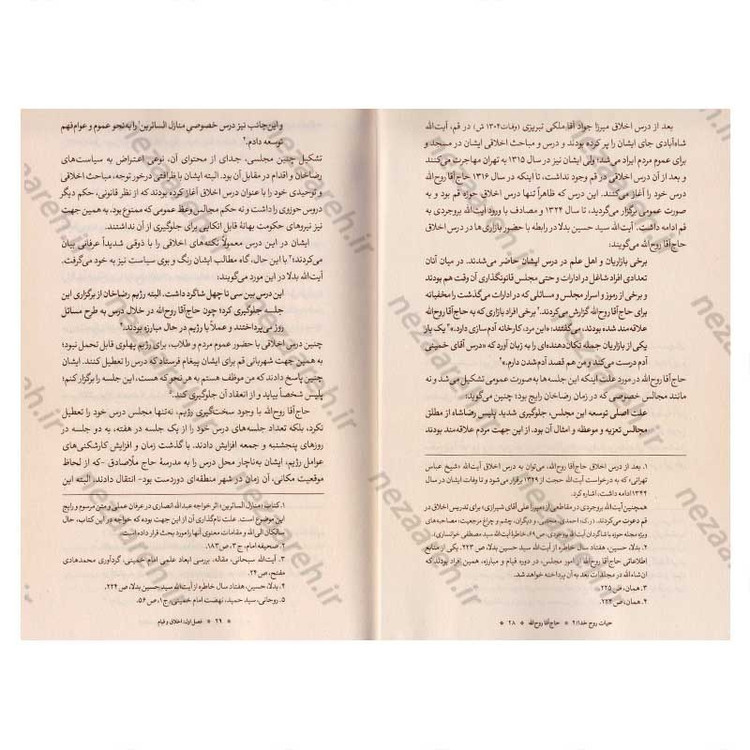 بعد از درس اخلاق میرزا جواد آقا ملکی تبریزی (وفات ۱۳۰۴ ش) در قم، آیت‌الله
شاه‌آبادی جای ایشان را پر کرده بودند و درس و مباحث اخلاقی ایشان در مسجد و
برای عموم مردم ایراد می‌شد؛ ولی ایشان نیز در سال ۱۳۱۵ به تهران مهاجرت می‌کنند
و بعد از آن درس اخلاقی در قم وجود نداشت، تا اینکه در سال ۱۳۱۶ حاج‌آقا روح‌الله
درس خود را آغاز می‌کنند. این درس که ظاهراً تنها درس اخلاق حوزه قم بود و به
صورت عمومی برگزار می‌گردید، تا سال ۱۳۲۴ و مصادف با ورود آیت‌الله بروجردی به
قم ادامه داشت. آیت‌الله سید حسین بدلا در رابطه با حضور بازاری‌ها در درس اخلاق
حاج‌آقا روح‌الله می‌گویند:
برخی بازاریان و اهل علم در درس ایشان حاضر می‌شدند. در میان آنان
تعدادی افراد شاغل در ادارات و حتی مجلس قانونگذاری آن وقت هم بودند
و برخی از رموز و اسرار مجلس و مسائلی که در ادارات می‌گذشت را مخفیانه
برای حاج‌آقا روح‌الله گزارش می‌کردند.۲ برخی افراد بازاری که به حاج‌آقا روح‌الله
علاقه‌مند شده بودند، می‌گفتند: «این مرد، کارخانه آدم سازی دارد.»۳ یک بار
یکی از بازاریان جمله تکان‌دهنده‌ای را به زبان آورد که «درس آقای خمینی
آدم درست می‌کند و من هم قصد آدم شدن دارم.»۴
حاج‌آقا روح‌الله در مورد علت اینکه این جلسه‌ها به‌صورت عمومی تشکیل می‌شد و نه
مانند مجالس خصوصی که در زمان رضاخان رایج بود؛ چنین می‌گوید:
علت اصلی توسعه این مجلس، جلوگیری شدید پلیس رضاشاه از مطلق
مجالس تعزیه و موعظه و امثال آن بود. از این جهت مردم علاقه‌مند بودند
۱. بعد از درس اخلاق حاج‌آقا روح‌الله، می‌توان به درس اخلاق آیت‌الله «شیخ عباس
تهرانی» که به درخواست آیت‌الله حجت از ۱۳۲۹ برقرار می‌شود و تا وفات ایشان در سال
۱۳۴۴ ادامه داشت، اشاره کرد.
همچنین آیت‌الله بروجردی در مقاطعی از «میرزا علی آقای شیرازی» برای تدریس اخلاق در
قم دعوت می‌کردند. (ر.ک: احمدی، مجتبی، و دیگران، چشم و چراغ مرجعیت، مصاحبه‌های
ویژه مجله حوزه با شاگردان آیت‌الله بروجردی، ص ۶۹، خاطرات آیت‌الله سید مصطفی خوانساری).
۲. بدلا، حسین، هفتاد سال خاطره از آیت‌الله سید حسین بدلا، ص ۲۲۳. یکی از منابع
اطلاعاتی حاج‌آقا روح‌الله از امور مجلس، در دوره قیام و مبارزه، همین افراد بودند که
ان شاءالله در مجلدات بعد به آن پرداخته خواهد شد.
۳. همان، ص ۲۲۵.
۴. همان، ص ۲۲۴.
حیات روح خدا/۲ * حاج‌آقا روح‌الله * ۲۸ *
و این‌جانب نیز درس خصوصی منازل السائرین۱ را به‌نحو عموم و عوام‌فهم
توسعه دادم.۲
تشکیل چنین مجلسی، جدای از محتوای آن، نوعی اعتراض به سیاست‌های
رضاخان و اقدام در مقابل آن بود. البته ایشان با ظرافتی درخور توجه، مباحث اخلاقی
و توحیدی خود را با عنوان درس اخلاق آغاز کرده بودند که از نظر قانونی، حکم دیگر
دروس حوزوی را داشت و نه حکم مجالس وعظ عمومی که ممنوع بود. به همین جهت
نیز نیروهای حکومت بهانۀ قابل اتکایی برای جلوگیری از آن نداشتند.
ایشان در این درس معمولاً نکته‌های اخلاقی را با ذوقی شدیداً عرفانی بیان
می‌کردند؛۳ با این حال، گاه مطالب ایشان رنگ و بوی سیاست نیز به خود می‌گرفت.
آیت‌الله بدلا در این مورد می‌گویند:
این درس بین سی تا چهل شاگرد داشت. البته رژیم رضاخان از برگزاری این
جلسه جلوگیری کرد؛ چون حاج‌آقا روح‌الله در خلال درس به طرح مسائل
روز می‌پرداختند و عملاً با رژیم در حال مبارزه بودند.۴
چنین درس اخلاقی با حضور عموم مردم و طلاب، برای رژیم پهلوی قابل تحمل نبود؛
به همین جهت شهربانی قم برای ایشان پیغام فرستاد که درس را تعطیل کنند. ایشان
چنین پاسخ دادند که من موظف هستم به هر نحو که هست، این جلسه را برگزار کنم؛
پلیس شخصاً بیاید و از انعقاد آن جلوگیری کند.۵
حاج‌آقا روح‌الله با وجود سخت‌گیری رژیم، نه‌تنها مجلس درس خود را تعطیل
نکرد، بلکه تعداد جلسه‌های درس خود را از یک جلسه در هفته، به دو جلسه در
روزهای پنجشنبه و جمعه افزایش دادند. با گذشت زمان و افزایش کارشکنی‌های
عوامل رژیم، ایشان به‌ناچار محل درس را به مدرسۀ حاج ملاصادق -که از لحاظ
موقعیت مکانی، آن زمان در شهر منطقه‌ای دوردست بود- انتقال دادند. البته این
۱. کتاب «منازل السائرین» اثر خواجه عبدالله انصاری در عرفان عملی و متن مرسوم و رایج
این موضوع است. علت نام‌گذاری آن از این جهت بوده که خواجه در این کتاب، حال
سالکان الی‌الله و مقامات معنوی آنها را مورد بحث قرار داده است.
۲. صحیفه امام، ج ۳، ص ۱۸۳.
۳. آیت‌الله سبحانی، مقاله، بررسی ابعاد علمی امام خمینی، گردآوری محمدهادی
مفتح، ص ۲۴.
۴. بدلا، حسین، هفتاد سال خاطره از آیت‌الله سید حسین بدلا، ص ۲۲۴.
۵. روحانی، سید حمید، نهضت امام خمینی، ج ۱، ص ۵۶.
* ۲۹ * فصل اول: اخلاق و قیام
nezaareh.ir